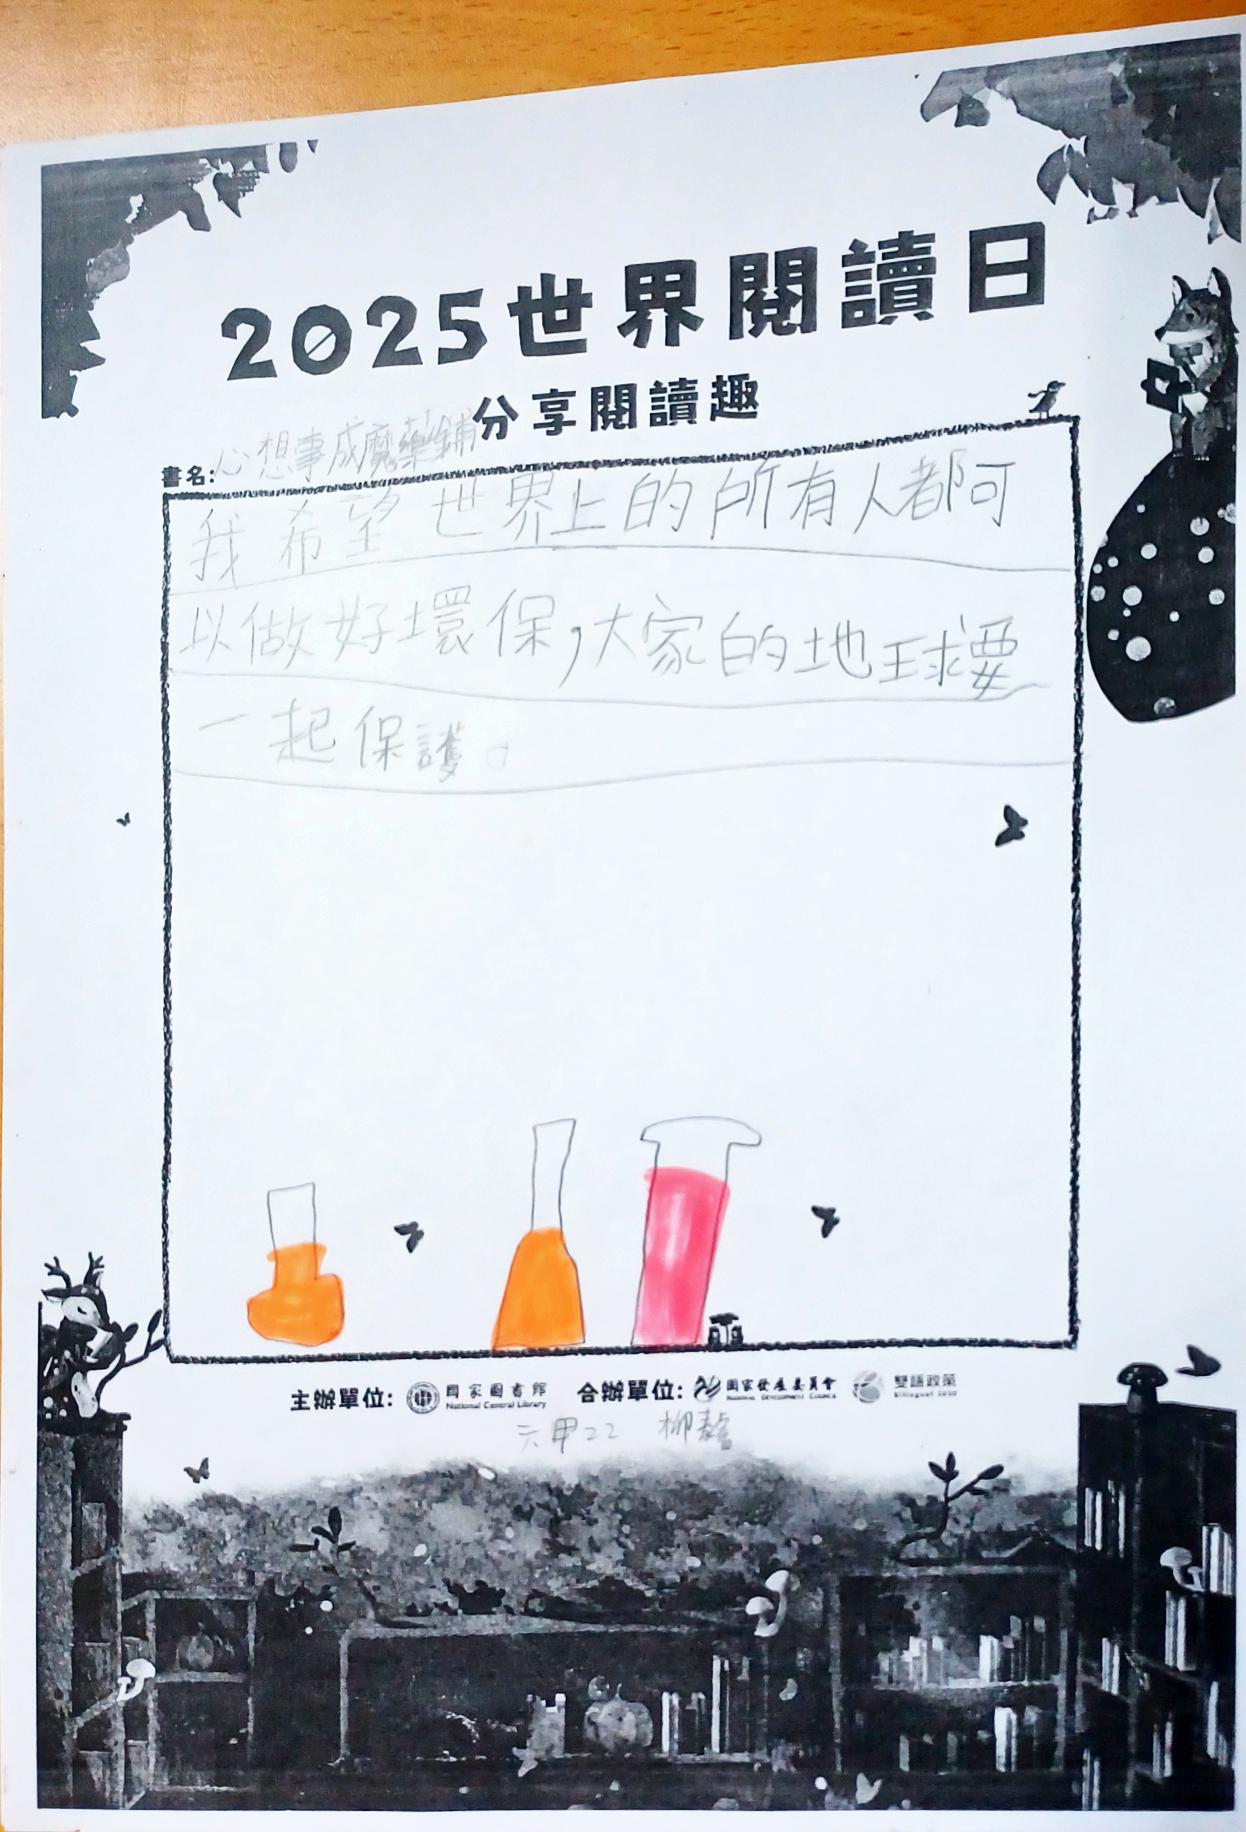 2025世界閱讀日
分享閱讀趣
書名:心想事成魔藥鋪
我希望世界上的所有人都可
以做好環保,大家的地球要
一起保護。
主辦單位: 國家圖書館 National Central Library 合辦單位: 國家發展委員會 National Development Council 雙語政策 Bilingual 2030
六甲22 柳